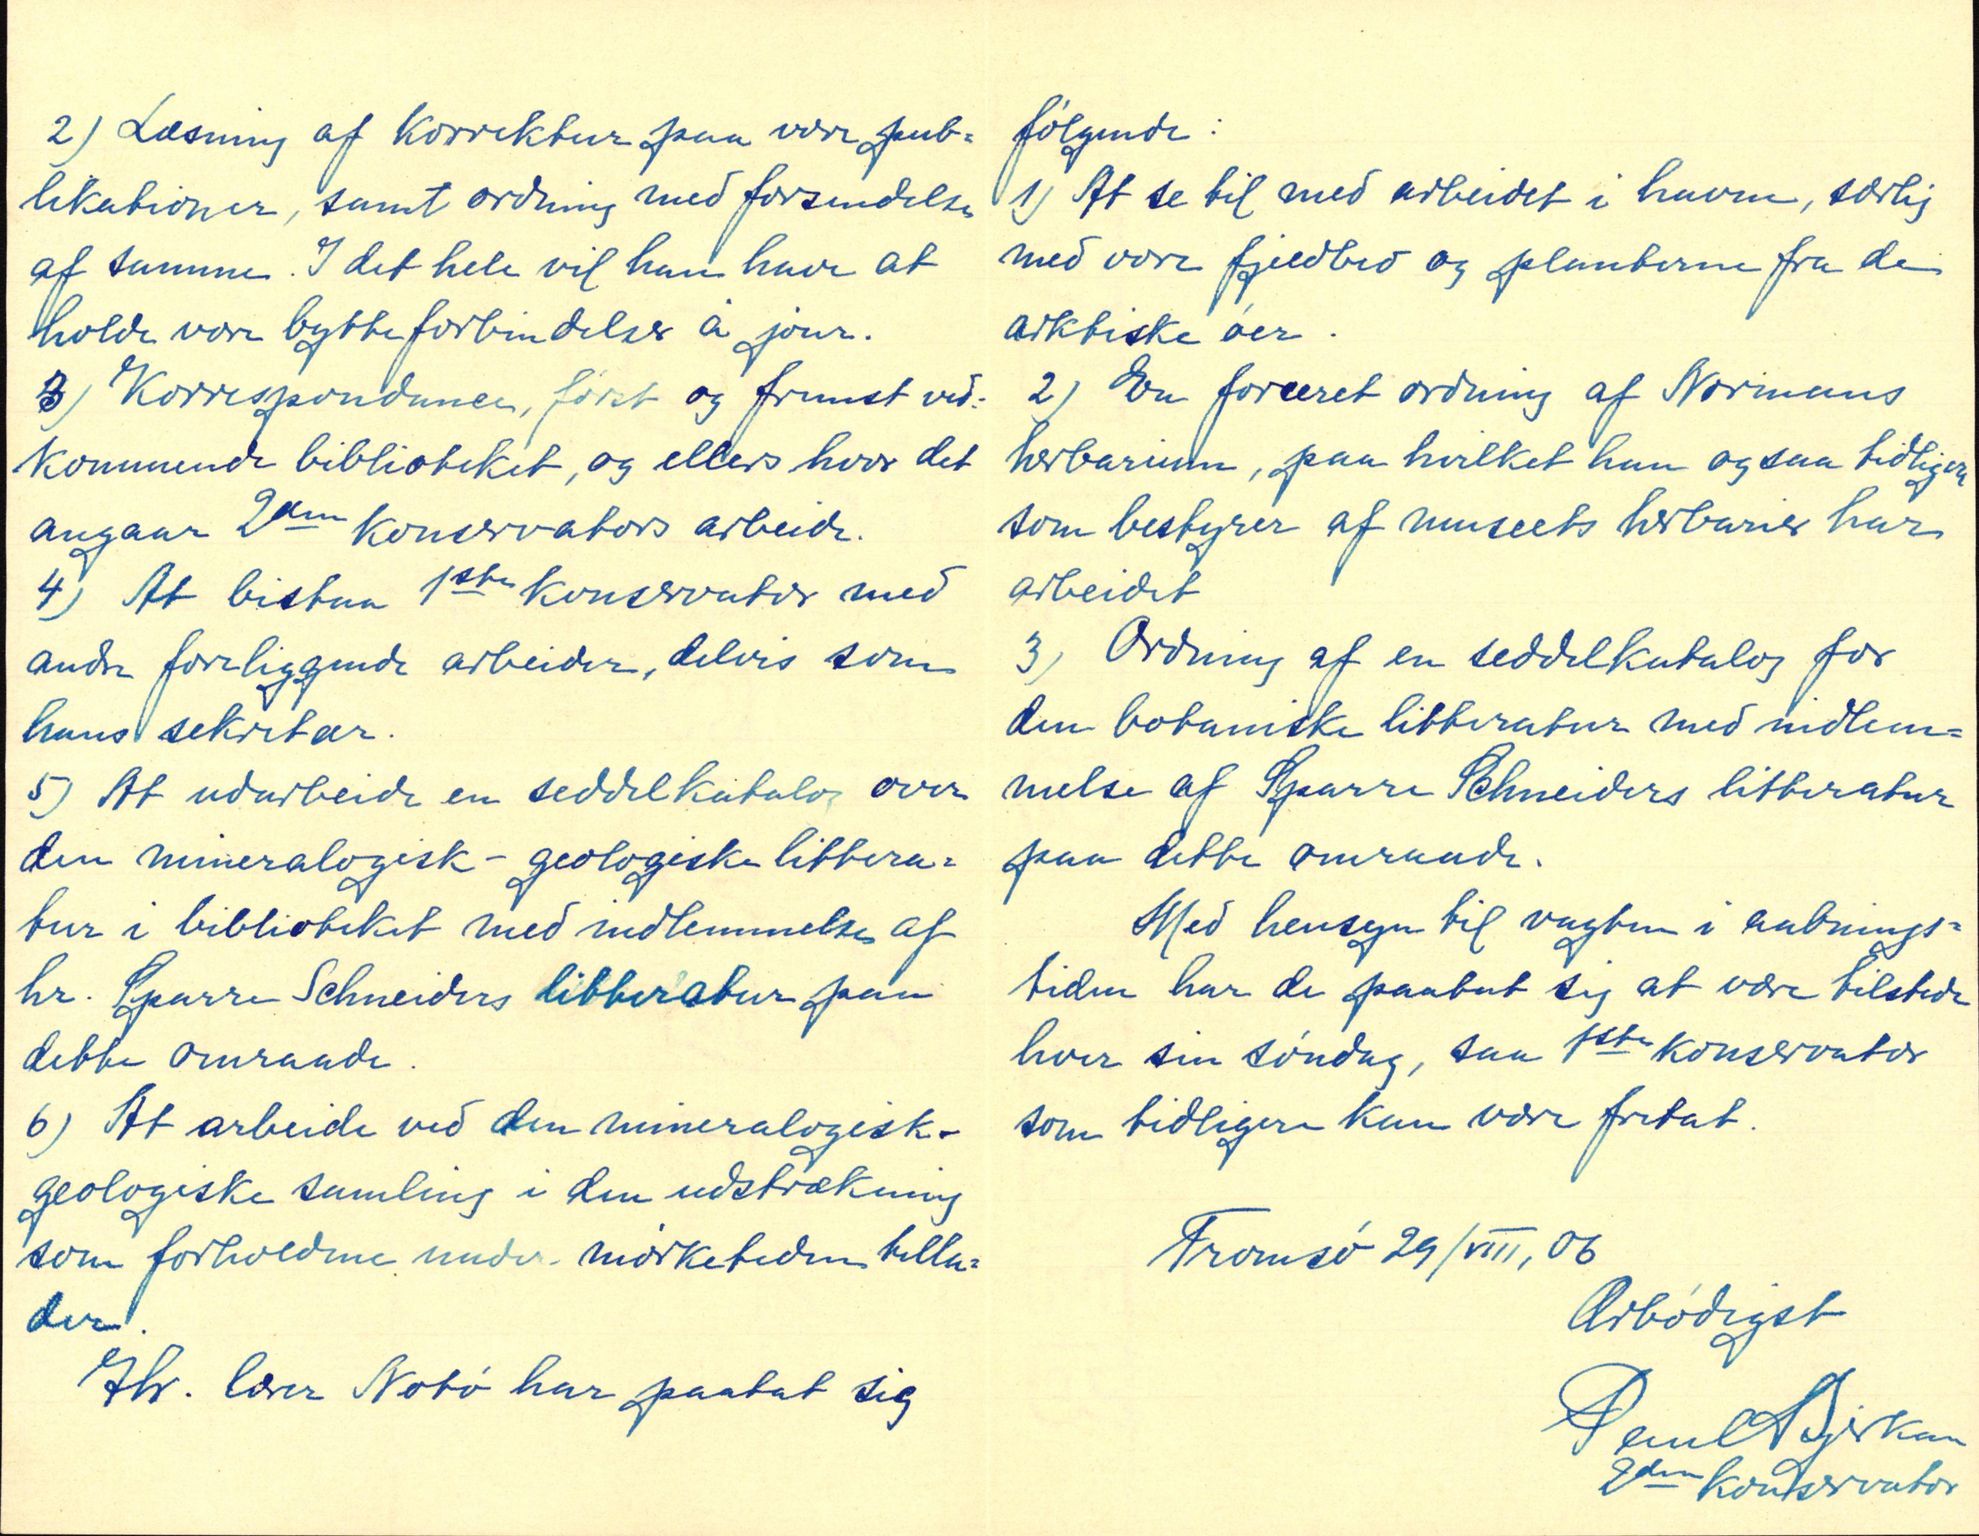 2) Læsning af korrektur paa vore pub=
likationer, samt ordning med forsendelse
af samme. I det hele vil han have at
holde vore bytteforbindelser à jour.
3) Korrespondancen, først og fremst ved=
kommende biblioteket, og ellers hvor det
angaar 2den konservators arbeide.
4) At bistaa 1ste konservator med
andre foreliggende arbeider, delvis som
hans sekretær.
5) At udarbeide en seddelkatalog over
den mineralogisk-geologiske littera=
tur i biblioteket med indlemmelse af
hr. Sparre Schneiders litteratur paa
dette omraade.
6) At arbeide ved den mineralogisk-
geologiske samling i den udstrækning
som forholdene under mørketiden tilla=
der.
Hr. lærer Notø har paatat sig
følgende:
1) At se til med arbeidet i haven, særlig
med vore fjeldbed og planterne fra de
arktiske øer.
2) En forceret ordning af Normans
herbarium, paa hvilket han ogsaa tidligere
som bestyrer af museets herbarier har
arbeidet
3) Ordning af en seddelkatalog for
den botaniske litteratur med indlem=
melse af Sparre Schneiders litteratur
paa dette omraade.
Med hensyn til vagten i aabnings=
tiden har de paatat sig at være tilstede
hver sin søndag, saa 1ste konservator
som tidligere kan være fritat.
Tromsø 29/VIII, 06
Ærbødigst
Paul Bjerkan
2den konservator